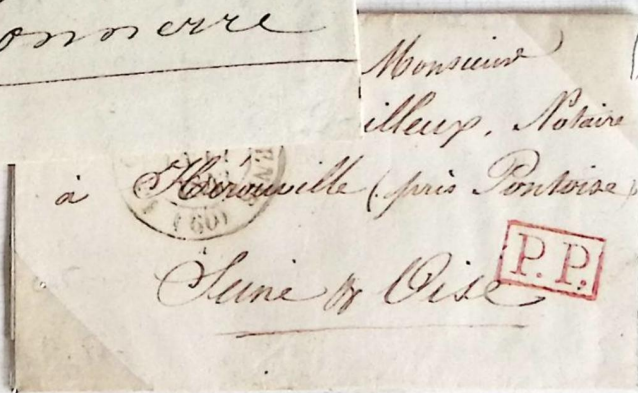 Monsieur
illeux, Notaire
à Hérouville (près Pontoise)
(60)
P.P.
Seine & Oise